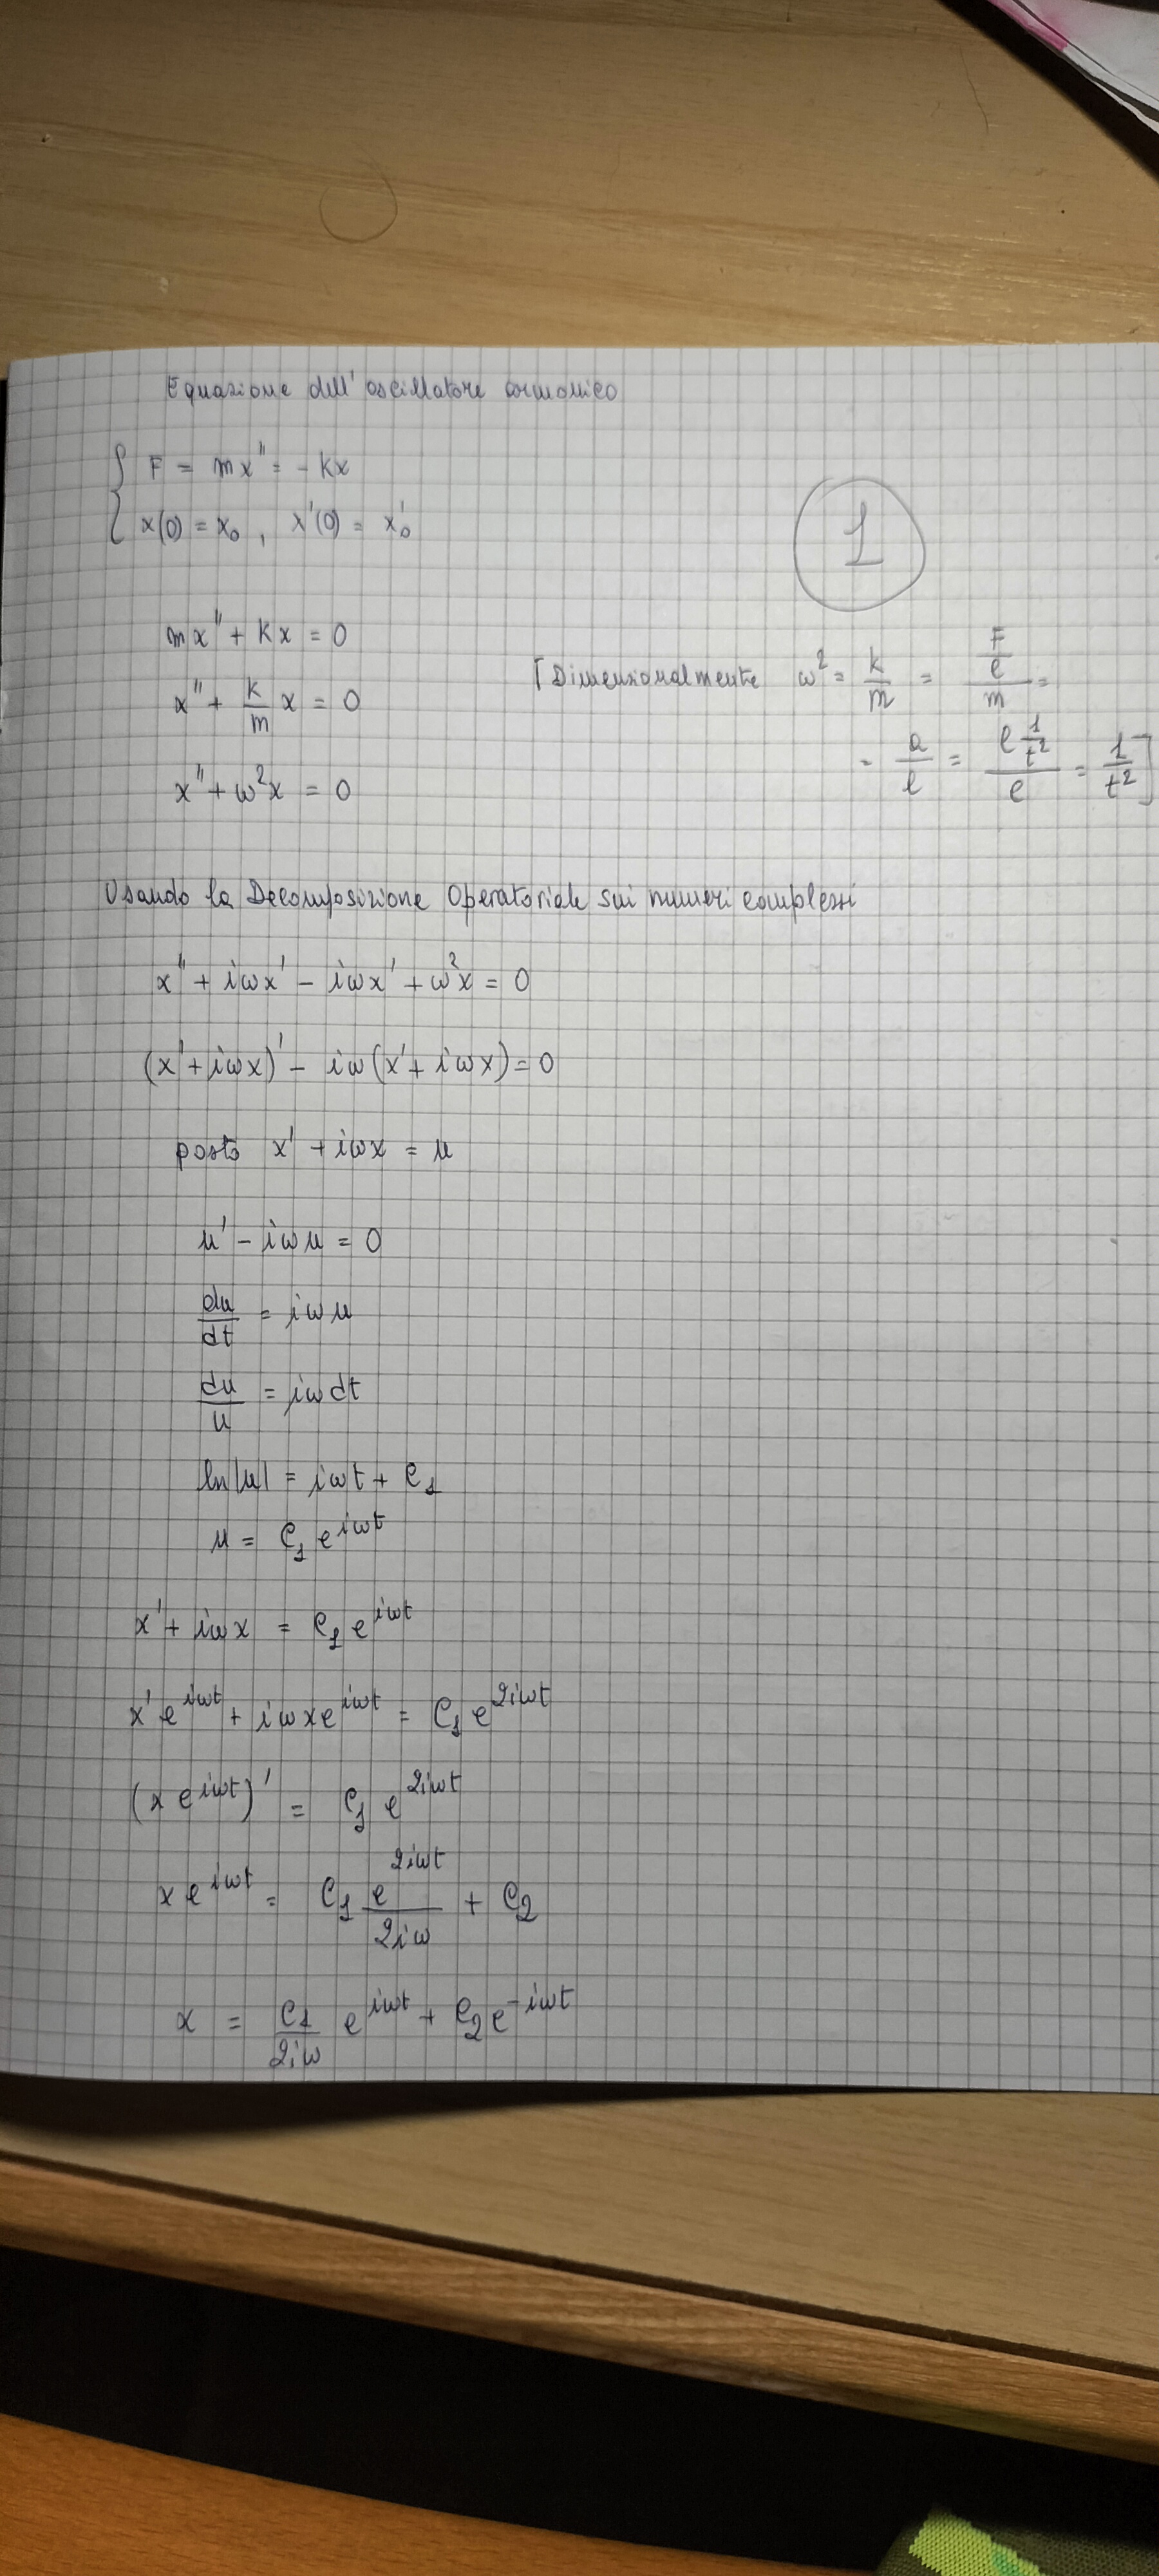 Equazione dell'oscillatore armonico
{ F = mx'' = - kx
x(0) = x₀ , x'(0) = x'₀
1
mx'' + kx = 0
x'' + k/m x = 0
[Dimensionalmente ω² = k/m = (F/l)/m =
= a/l = (l 1/t²)/l = 1/t²]
x'' + ω²x = 0
Usando la Decomposizione Operatoriale sui numeri complessi
x'' + iωx' - iωx' + ω²x = 0
(x' + iωx)' - iω(x' + iωx) = 0
posto x' + iωx = u
u' - iωu = 0
du/dt = iωu
du/u = iωdt
ln|u| = iωt + c₁
u = c₁ e^{iωt}
x' + iωx = c₁ e^{iωt}
x' e^{iωt} + iωx e^{iωt} = c₁ e^{2iωt}
(x e^{iωt})' = c₁ e^{2iωt}
x e^{iωt} = c₁ e^{2iωt}/2iω + c₂
x = c₁/2iω e^{iωt} + c₂ e^{-iωt}